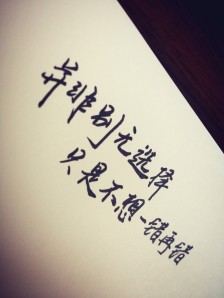 并非别无选择
只是不想一错再错